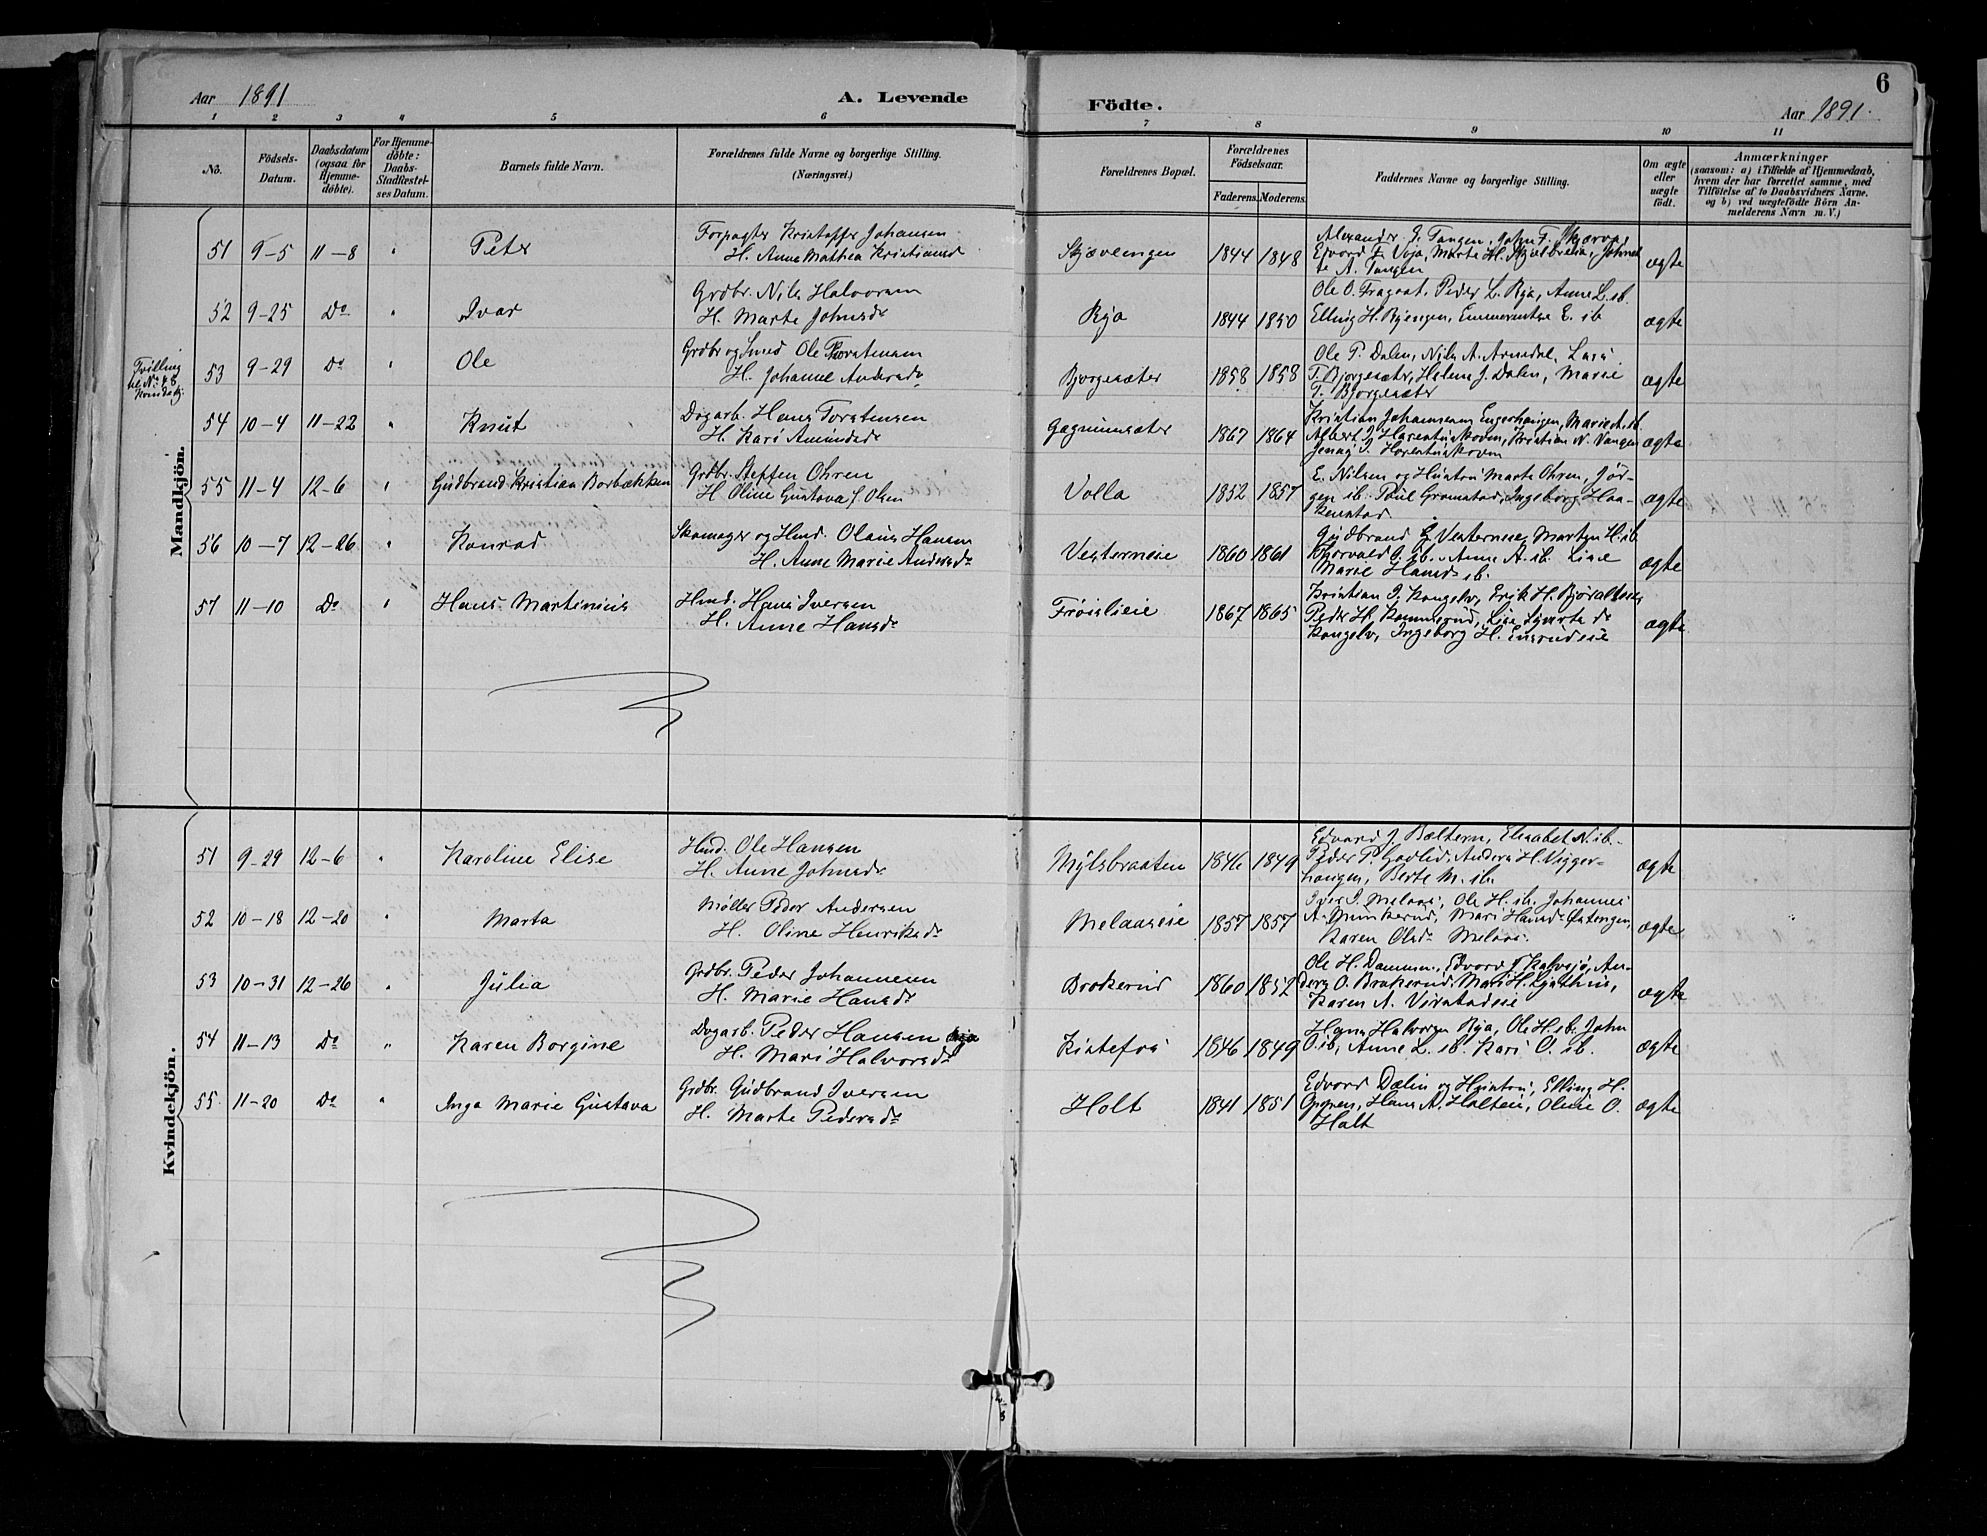 Aar 1891
A. Levende
Födte.
6
Aar 1891.
1 2 3 4 5 6 7 8 9 10 11
No.
Födsels-
Datum.
Daabsdatum
(ogsaa for
Hjemme-
döbte).
For Hjemme-
döbte:
Daabs-
Stadfæstel-
ses Datum.
Barnets fulde Navn.
Forældrenes fulde Navne og borgerlige Stilling.
(Næringsvei.)
Forældrenes Bopæl.
Forældrenes
Födselsaar.
Faderens. Moderens.
Faddernes Navne og borgerlige Stilling.
Om ægte
eller
uægte
födt.
Anmærkninger
(saasom: a) i Tilfælde af Hjemmedaab,
hvem der har forrettet samme, med
Tilföielse af to Daabsvidners Navne.
og b) ved uægtefödte Börn An-
melderens Navn m. V.)
Mandkjön.
51 9-5 11-8 " Peter
Forpagter Kristoffer Johansen
H. Anne Mathea Kristiansd
Skjævlengen 1844 1848
Alexander G. Tangen, John F.
ægte
52 9-25 Do " Ivar
Grdbr. Nils Halvorsen
H. Marte Johnsdr
Rya 1844 1850
Ole O. Fragaat, Peder L. Rya, Anne L. ib.
Elling H. Ryengen, E. ib
ægte
Tvilling
til No 48
Kvindekj.
53 9-29 Do " Ole
Grdbr og Smed Ole Torstensen
H. Johanne Andersdr
Bjørgesæter 1858 1858
Ole P. Dalen, Nils A. Arnedal, Lars
T. Bjørgesæter, Helene J. Dalen, Marie
T. Bjørgesæter
ægte
54 10-4 11-22 " Knut
Dagarb. Hans Torstensen
H. Kari Amundsdr
Gagnumsæter 1867 1864
Kristian Johannesen Engerhaugen, Marie A. ib.
Albert J. Kristian N. Vangen
ægte
55 11-4 12-6 " Gudbrand Kristian Borbækken
Grdbr. Steffen Ohren
H. Oline Gustava f. Olsen
Volla 1852 1857
E. Nilsen og Hustru Marte Ohren, Jør-
gen ib. Paul Gramstad, Ingeborg Haa-
kenstad
ægte
56 10-7 12-26 " Konrad
Skomager og Hmd. Olaus Hansen
H. Anne Marie Andersdr
Vesterneie 1860 1861
Gudbrand G. Vesterneie, Martin H. ib
Thorvald O. ib. Anne A. ib. Lise
Marie Hansd ib.
ægte
57 11-10 Do " Hans Martinius
Hmd. Hans Iversen
H. Anne Hansdr
Frøislieie 1867 1865
Kristian J. Kongelv, Erik H.
Peder H. Kammerud, Lise
Kongelv, Ingeborg H. Ensrudeie
ægte
Kvindekjön.
51 9-29 12-6 " Karoline Elise
Hmd. Ole Hansen
H. Anne Johnsdr
Mylsbraaten 1846 1849
Edvard J. Bæltern, Elisabet N. ib.
Peder P. Godlid, Anders H. Vigger-
haugen, Berte M. ib.
ægte
52 10-18 12-20 " Marta
Møller Peder Andersen
H. Oline Henriksdr
Melaaseie 1857 1857
Iver I. Melaas, Ole H. ib. Johannes
A. Munkerud, Mari Hansd Østengen,
Karen Olsdr Melaas.
ægte
53 10-31 12-26 " Julia
Grdbr. Peder Johannesen
H. Marie Hansdr
Brokerud 1860 1852
Ole H. Dammen, Edvard J. Kalvsjø, An-
ders O. Brokerud, Mari H. Lysthus,
Karen A. Virstadeie
ægte
54 11-13 Do " Karen Borgine
Dagarb. Peder Hansen Rya
H. Mari Halvorsdr
Kistefos 1846 1849
Hans Halvorsen Rya, Ole H. ib. John
O. ib, Anne L. ib. Kari O. ib.
ægte
55 11-20 Do " Inga Marie Gustava
Grdbr. Gudbrand Iversen
H. Marte Pedersdr
Holt 1841 1851
Edvard Dælin og Hustru, Elling H.
Oppen, Hans A. Holteie, Oline O.
Holt
ægte